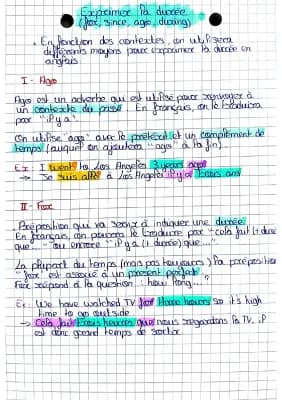 Exprimer la durée
(for, since, ago, during)
• En fonction des contextes, on utilisera
différents moyens pour exprimer la durée en
anglais.
I - Ago
Ago est un adverbe qui est utilisé pour renvoyer à
un contexte du passé. En français, on le traduira
par "il y a".
On utilise "ago" avec le prétérit et un complément de
temps (auquel on ajoutera "ago" à la fin)
Ex: I went to Los Angeles 3 years ago
→ Je suis allé à Los Angeles il y a trois ans
II - For
Préposition qui va servir à indiquer une durée.
En français, on pourra le traduire par "cela fait (+ durée)
que..." ou encore "il y a (+ durée) que..."
La plupart du temps (mais pas toujours) la préposition
"for" est associé à un present perfect.
For répond à la question "how long...?"
Ex: We have watched TV for three hours so it's high
time to go outside
→ Cela fait trois heures que nous regardons la TV, il
est donc grand temps de sortir